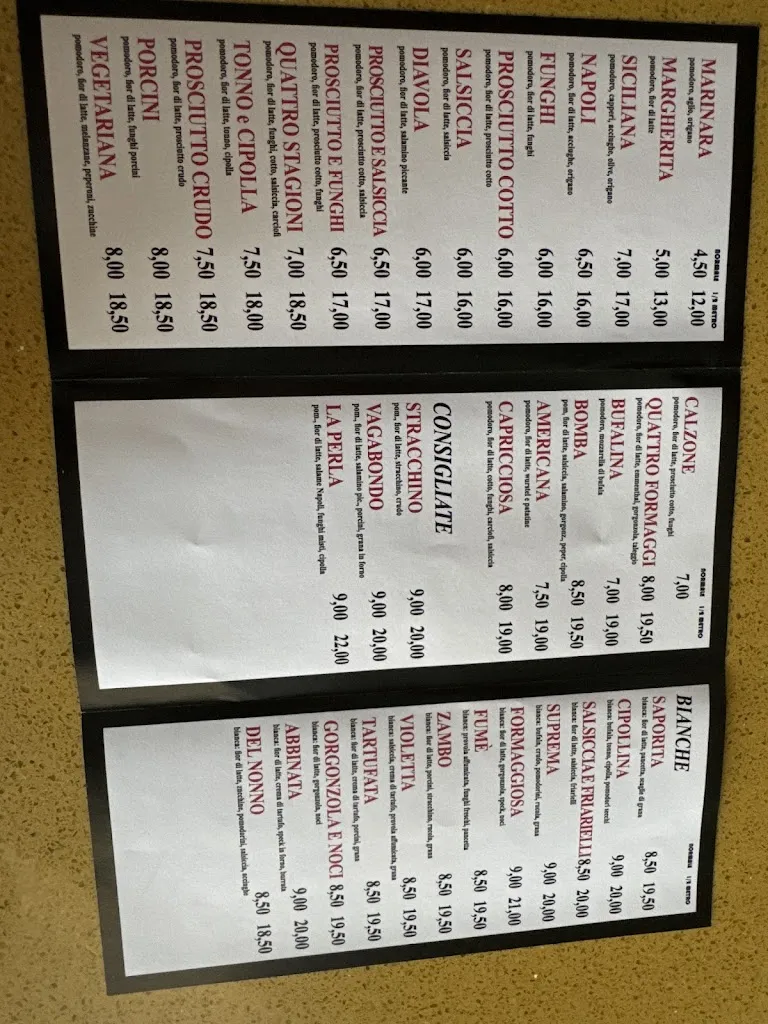 NORMALE 1/2 METRO
MARINARA 4,50 12,00
pomodoro, aglio, origano
MARGHERITA 5,00 13,00
pomodoro, fior di latte
SICILIANA 7,00 17,00
pomodoro, capperi, acciughe, olive, origano
NAPOLI 6,50 16,00
pomodoro, fior di latte, acciughe, origano
FUNGHI 6,00 16,00
pomodoro, fior di latte, funghi
PROSCIUTTO COTTO 6,00 16,00
pomodoro, fior di latte, prosciutto cotto
SALSICCIA 6,00 16,00
pomodoro, fior di latte, salsiccia
DIAVOLA 6,00 17,00
pomodoro, fior di latte, salamino piccante
PROSCIUTTO E SALSICCIA 6,50 17,00
pomodoro, fior di latte, prosciutto cotto, salsiccia
PROSCIUTTO E FUNGHI 6,50 17,00
pomodoro, fior di latte, prosciutto cotto, funghi
QUATTRO STAGIONI 7,00 18,50
pomodoro, fior di latte, funghi, cotto, salsiccia, carciofi
TONNO e CIPOLLA 7,50 18,00
pomodoro, fior di latte, tonno, cipolla
PROSCIUTTO CRUDO 7,50 18,50
pomodoro, fior di latte, prosciutto crudo
PORCINI 8,00 18,50
pomodoro, fior di latte, funghi porcini
VEGETARIANA 8,00 18,50
pomodoro, fior di latte, melanzane, peperoni, zucchine
NORMALE 1/2 METRO
CALZONE 7,00
pomodoro, fior di latte, prosciutto cotto, funghi
QUATTRO FORMAGGI 8,00 19,50
pomodoro, fior di latte, emmenthal, gorgonzola, taleggio
BUFALINA 7,00 19,00
pomodoro, mozzarella di bufala
BOMBA 8,50 19,50
pom, fior di latte, salsiccia, salamino, gorgonz., peper, cipolla
AMERICANA 7,50 19,00
pomodoro, fior di latte, wurstel e patatine
CAPRICCIOSA 8,00 19,00
pomodoro, fior di latte, cotto, funghi, carciofi, salsiccia
CONSIGLIATE
STRACCHINO 9,00 20,00
pom., fior di latte, stracchino, crudo
VAGABONDO 9,00 20,00
pom., fior di latte, salamino pic., porcini, grana in forno
LA PERLA 9,00 22,00
pom., fior di latte, salame Napoli, funghi misti, cipolla
BIANCHE
NORMALE 1/2 METRO
SAPORITA 8,50 19,50
bianca: fior di latte, pancetta, scaglie di grana
CIPOLLINA 9,00 20,00
bianca: bufala, tonno, cipolla, pomodori secchi
SALSICCIA E FRIARIELLI 8,50 20,00
bianca: fior di latte, salsiccia, friarielli
SUPREMA 9,00 20,00
bianca: bufala, crudo, pomodorini, rucola, grana
FORMAGGIOSA 9,00 21,00
bianca: fior di latte, gorgonzola, speck, noci
FUMÈ 8,50 19,50
bianca: provola affumicata, funghi freschi, pancetta
ZAMBO 8,50 19,50
bianca: fior di latte, porcini, stracchino, rucola, grana
VIOLETTA 8,50 19,50
bianca: salsiccia, crema di tartufo, provola affumicata, grana
TARTUFATA 8,50 19,50
bianca: fior di latte, crema di tartufo, porcini, grana
GORGONZOLA E NOCI 8,50 19,50
bianca: fior di latte, gorgonzola, noci
ABBINATA 9,00 20,00
bianca: fior di latte, crema di tartufo, speck in forno, burrata
DEL NONNO 8,50 18,50
bianca: fior di latte, zucchine, pomodorini, salsiccia, acciughe